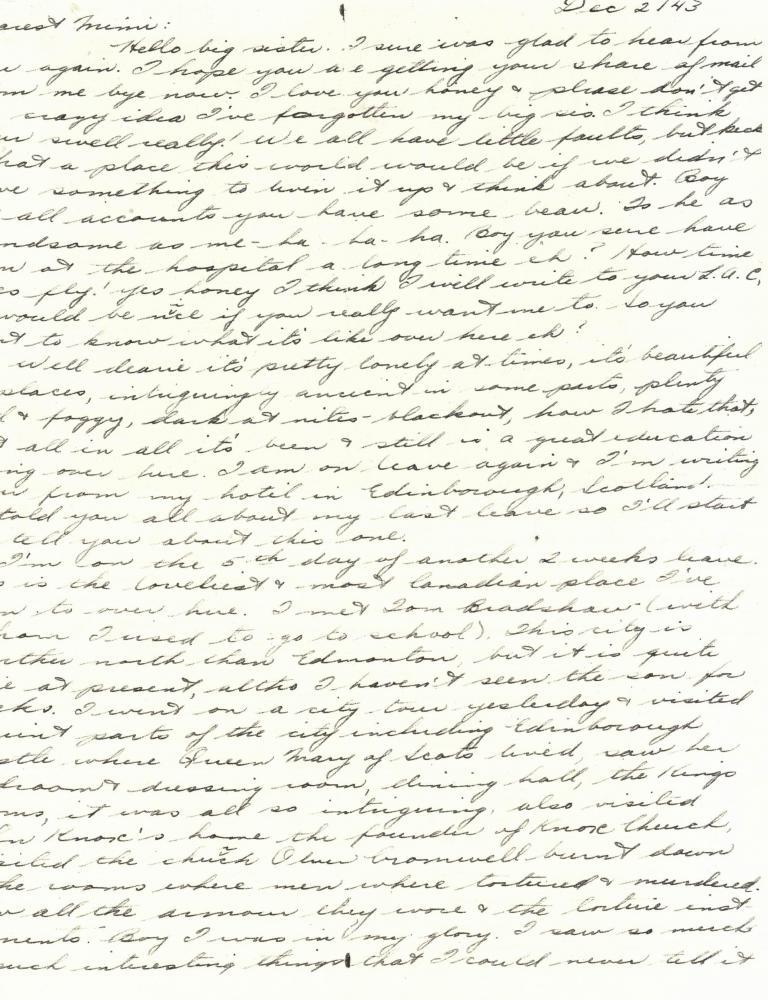 Dec 2/43
arest Mimi:
Hello big sister. I sure was glad to hear from
u again. I hope you a e getting your share of mail
om me bye now. I love you honey & please don't get
crazy idea I've forgotten my big sis. I think
ur swell really! We all have little faults, but heck
hat a place this world would be if we didn't
ve something to livin it up & think about. Boy
all accounts you have some beau. Is he as
ndsome as me - ha - ha - ha. Boy you sure have
n at the hospital a long time eh? How time
es fly! Yes honey I think I will write to your L.A.C.
would be nice if you really want me to. So you
nt to know what it's like over here eh?
Well dearie it's pretty lonely at times, it's beautiful
places, intriguingly ancient in some parts, plenty
d & foggy, dark at nites - blackout, how I hate that,
t all in all it's been & still is a great education
ng over here. I am on leave again & I'm writing
u from my hotil in Edinborough, Scotland.
told you all about my last leave so I'll start
tell you about this one.
I'm on the 5th day of another 2 weeks leave.
s is the loveliest & most Canadian place I've
n to over here. I met Tom Bradshaw (with
hom I used to go to school). This city is
rther north than Edmonton, but it is quite
e at present, altho I haven't seen the son for
eks. I went on a city tour yesterday & visited
uint parts of the city including Edinborough
stle where Queen Mary of Scots lived, saw her
droom & dressing room, dining hall, the Kings
oms, it was all so intriguing, also visited
hn Knox's home the founder of Knox Church,
isited the church Oliver Cromwell burnt down
he rooms where men where tortured & murdered.
w all the armour they wore & the torture inst
ments. Boy I was in my glory. I saw so much
such interesting things that I could never tell it